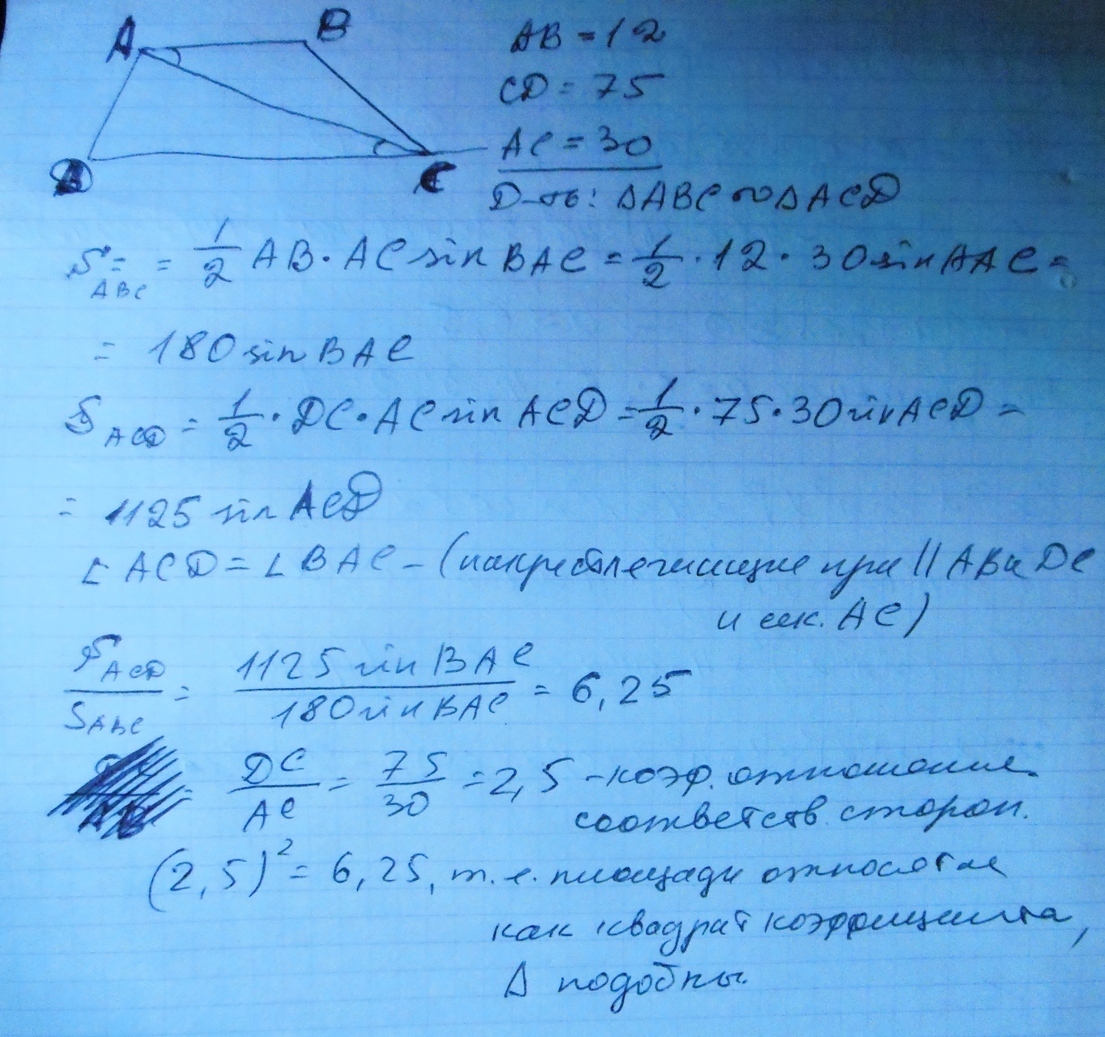 A B
D C
AB = 12
CD = 75
AC = 30
Д-ть: ΔABC ∾ ΔACD
S ABC = 1/2 AB · AC sin BAC = 1/2 · 12 · 30 sin BAC =
= 180 sin BAC
S ACD = 1/2 · DC · AC sin ACD = 1/2 · 75 · 30 sin ACD =
= 1125 sin ACD
∠ ACD = ∠ BAC – (накрестлежащие при || AB и DC
и сек. AC)
S ACD / S ABC = 1125 sin BAC / 180 sin BAC = 6,25
DC / AC = 75 / 30 = 2,5 – коэф. отношение
соответств. сторон.
(2,5)² = 6,25, т. е. площади относятся
как квадрат коэффициента,
Δ подобны.